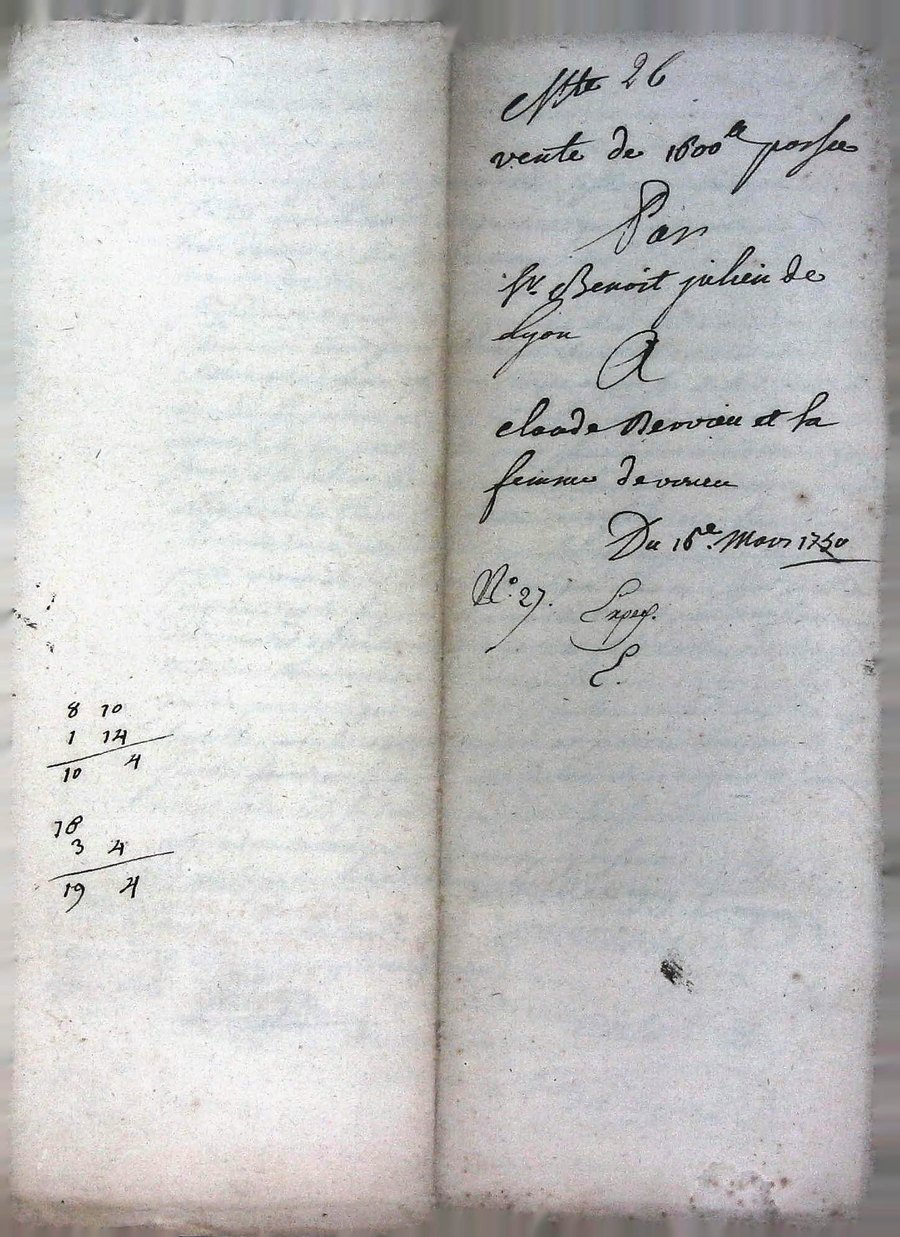 8 10
1 14
10 4
18
3 4
19 4
Cotte 26
vente de 1800ᵗᵗ passee
Par
sr. Benoit julien de
Lyon
A
claude Bervieu et sa
femme de
Du 16e. Mars 1750
No. 27. Exped.
E.